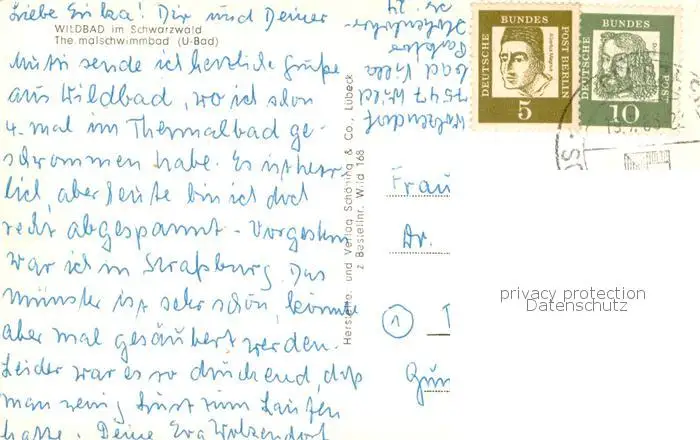 Liebe Erika! Dir und Deiner
WILDBAD im Schwarzwald
Thermalschwimmbad (U-Bad)
Mutti sende ich herzliche Grüße
aus Wildbad, wo ich schon
4. mal im Thermalbad ge-
schwommen habe. Es ist herr-
lich, aber heute bin ich doch
recht abgespannt - Vorgestern
war ich in Straßburg. Das
Münster ist sehr schön, könnte
aber mal gesäubert werden.
Leider war es so drückend, daß
man wenig Lust zum Laufen
hatte. Deine Eva Wolzendorf
Wolzendorf
7547 Wild
bad Villa
Herstellg. und Verlag Schöning & Co., Lübeck
z Bestellnr. Wild 168
DEUTSCHE BUNDES POST BERLIN
Albertus Magnus
5
DEUTSCHE BUNDES POST
10
Frau
Dr.
1
privacy protection
Datenschutz